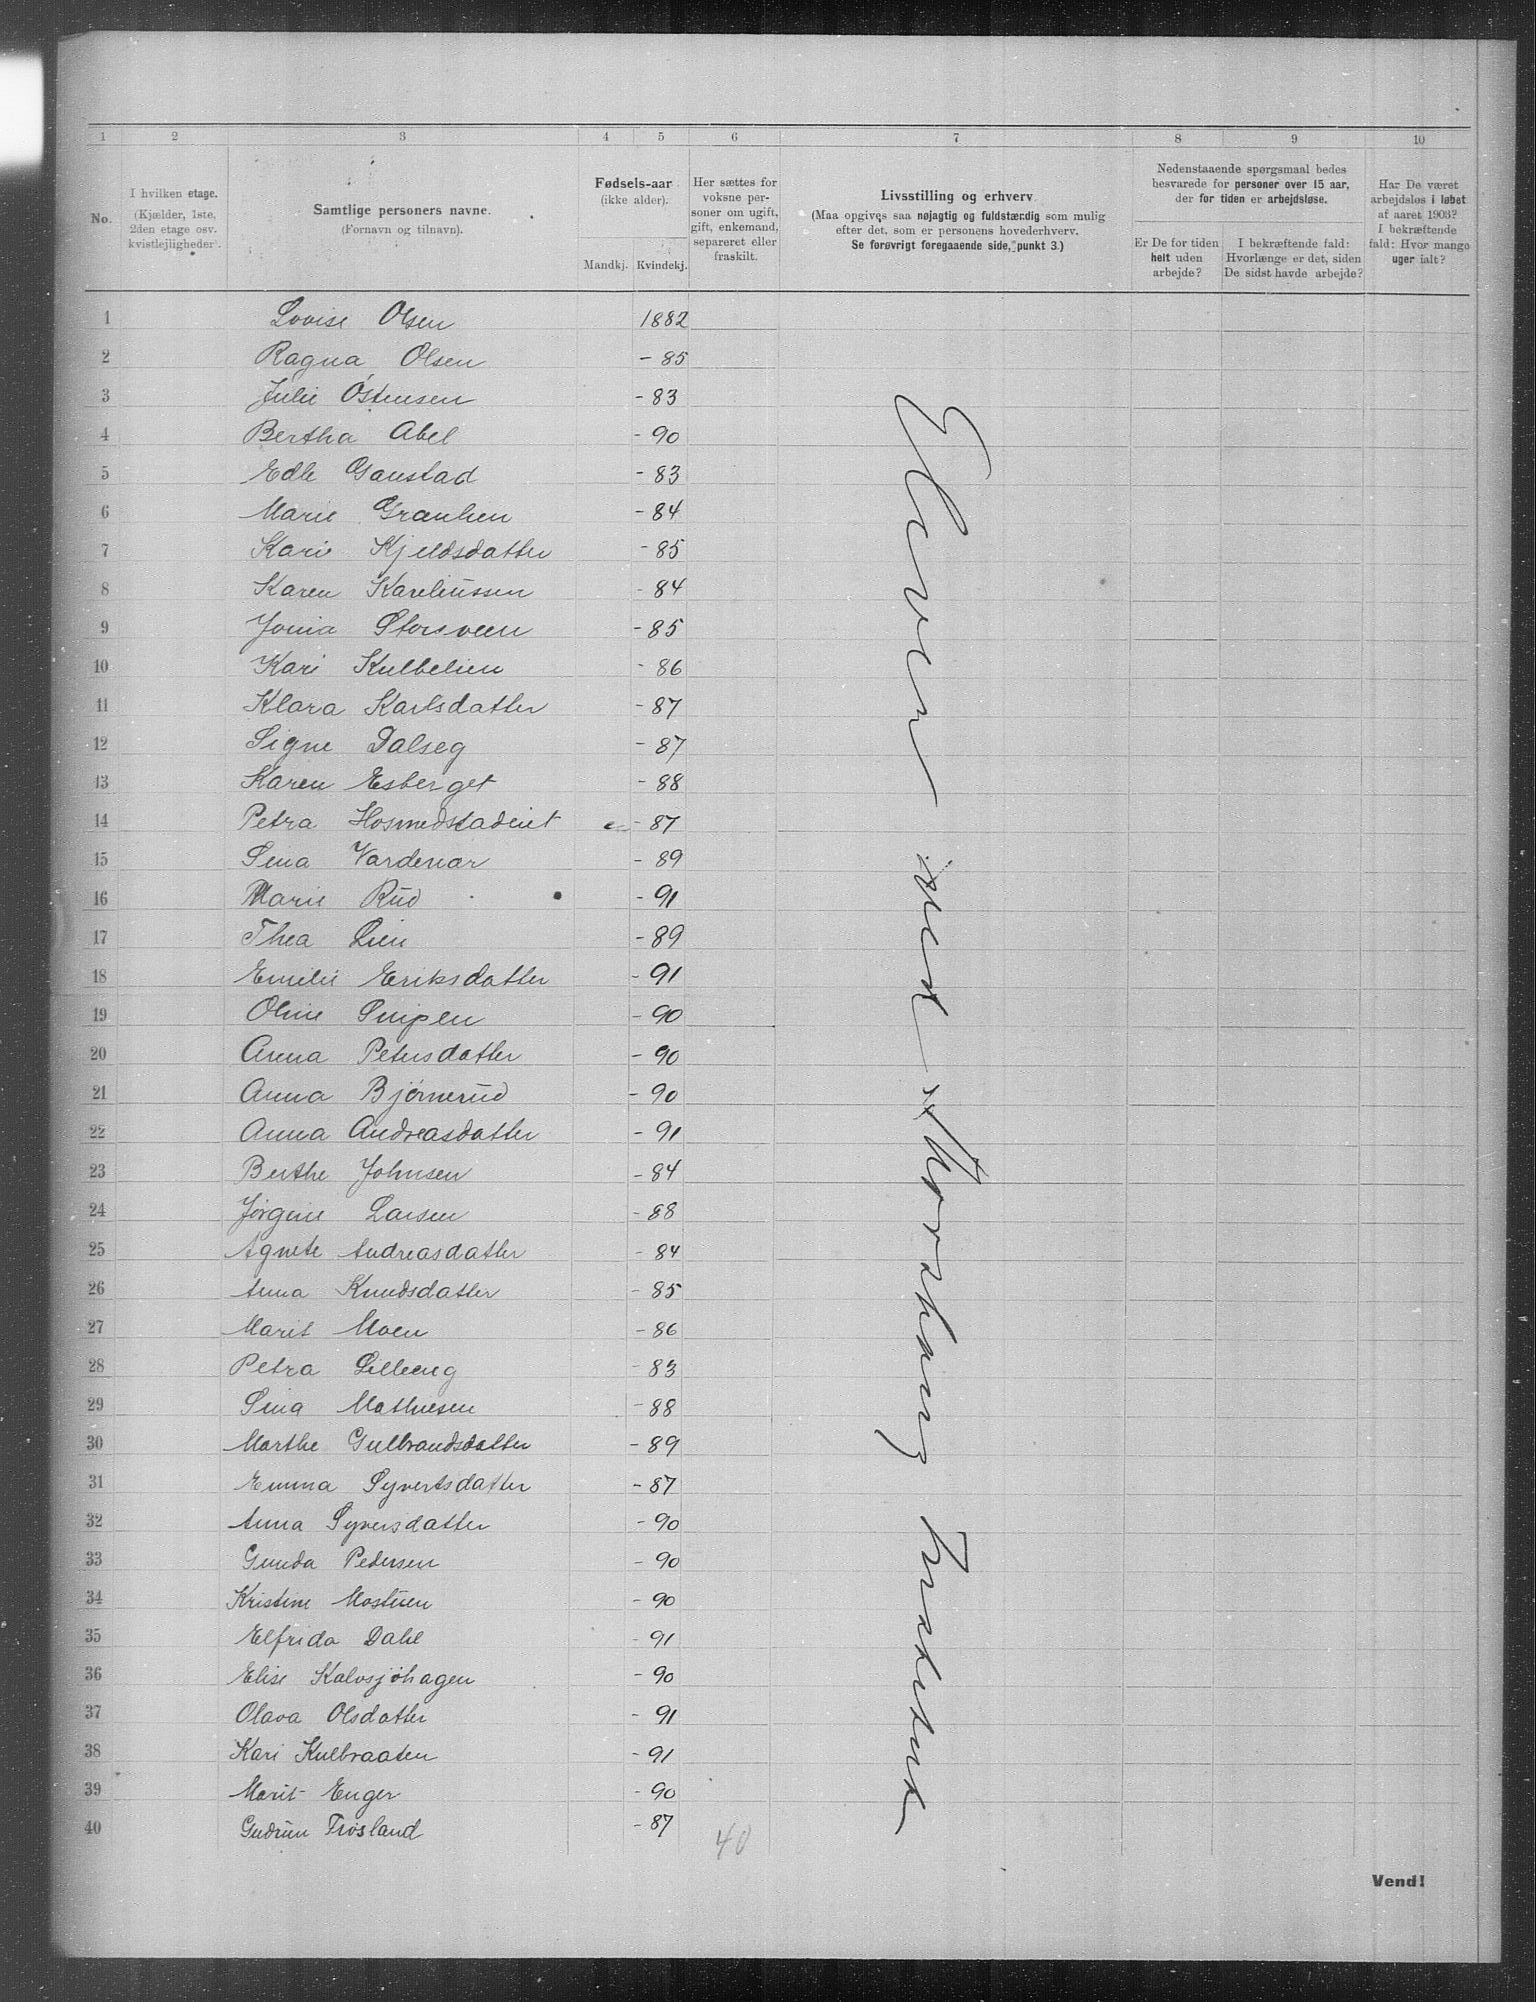 1 2 3 4 5 6 7 8 9 10
No.
I hvilken etage.
(Kjælder, 1ste, 2den etage osv. kvistlejligheder).
Samtlige personers navne.
(Fornavn og tilnavn).
Fødsels-aar
(ikke alder).
Mandkj. Kvindekj.
Her sættes for voksne personer om ugift, gift, enkemand, separeret eller fraskilt.
Livsstilling og erhverv
(Maa opgives saa nøjagtig og fuldstændig som mulig efter det, som er personens hovederhverv. Se forøvrigt foregaaende side, punkt 3.)
Nedenstaaende spørgsmaal bedes besvarede for personer over 15 aar, der for tiden er arbejdsløse.
Er De for tiden helt uden arbejde?
I bekræftende fald: Hvorlænge er det, siden De sidst havde arbejde?
Har De været arbejdsløs i løbet af aaret 1903? I bekræftende fald: Hvor mange uger ialt?
1 Lovise Olsen 1882
2 Ragna Olsen - 85
3 Julie Östensen - 83
4 Bertha Abel - 90
5 Edle Ganstad - 83
6 Marie Granlien - 84
7 Kari Kjeldsdatter - 85
8 Karen Kareliussen - 84
9 Jonia Storsveen - 85
10 Kari Kulbelien - 86
11 Klara Karlsdatter - 87
12 Signe Dalseg - 87
13 Karen Esberget - 88
14 Petra - 87
15 Sina Vardenar - 89
16 Marie Rud - 91
17 Thea Lien - 89
18 Emilie Eriksdatter - 91
19 Oline Snipen - 90
20 Anna Petersdatter - 90
21 Anna Bjørnerud - 90
22 Anna Andreasdatter - 91
23 Berthe Johnsen - 84
24 Jørgine Larsen - 88
25 Agnete Andreasdatter - 84
26 Anna Knudsdatter - 85
27 Marit Moen - 86
28 Petra Lilleeng - 83
29 Sina Mathiesen - 88
30 Marthe Gulbrandsdatter - 89
31 Emma Syvertsdatter - 87
32 Anna Syversdatter - 90
33 Gunda Pedersen - 90
34 Kristine Mostuen - 90
35 Elfrida Dahl - 91
36 Elise Kalvsjöhagen - 90
37 Olava Olsdatter - 91
38 Kari Kulbraaten - 91
39 Marit Enger - 90
40 Gudrun Frøsland - 87
40
Elever ved
Vend!